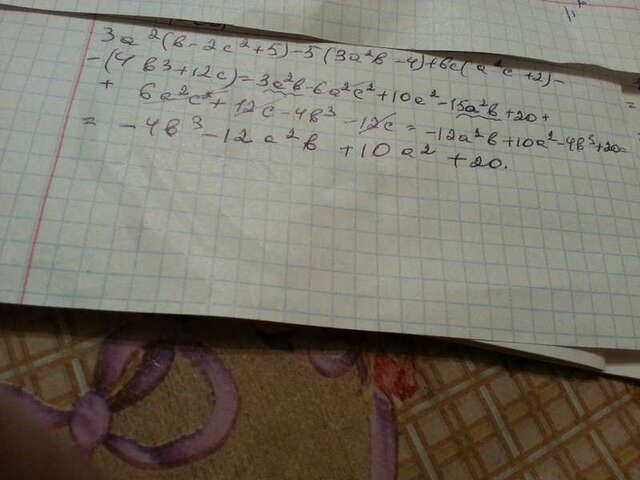 3a²(в-2c²+5)-5(3a²в-4)+6c(a²c+2)-
-(4в³+12c)=3a²в-6a²c²+10a²-15a²в+20+
+ 6a²c²+12c-4в³-12c=-12a²в+10a²-4в³+20=
= -4в³-12a²в+10a²+20.